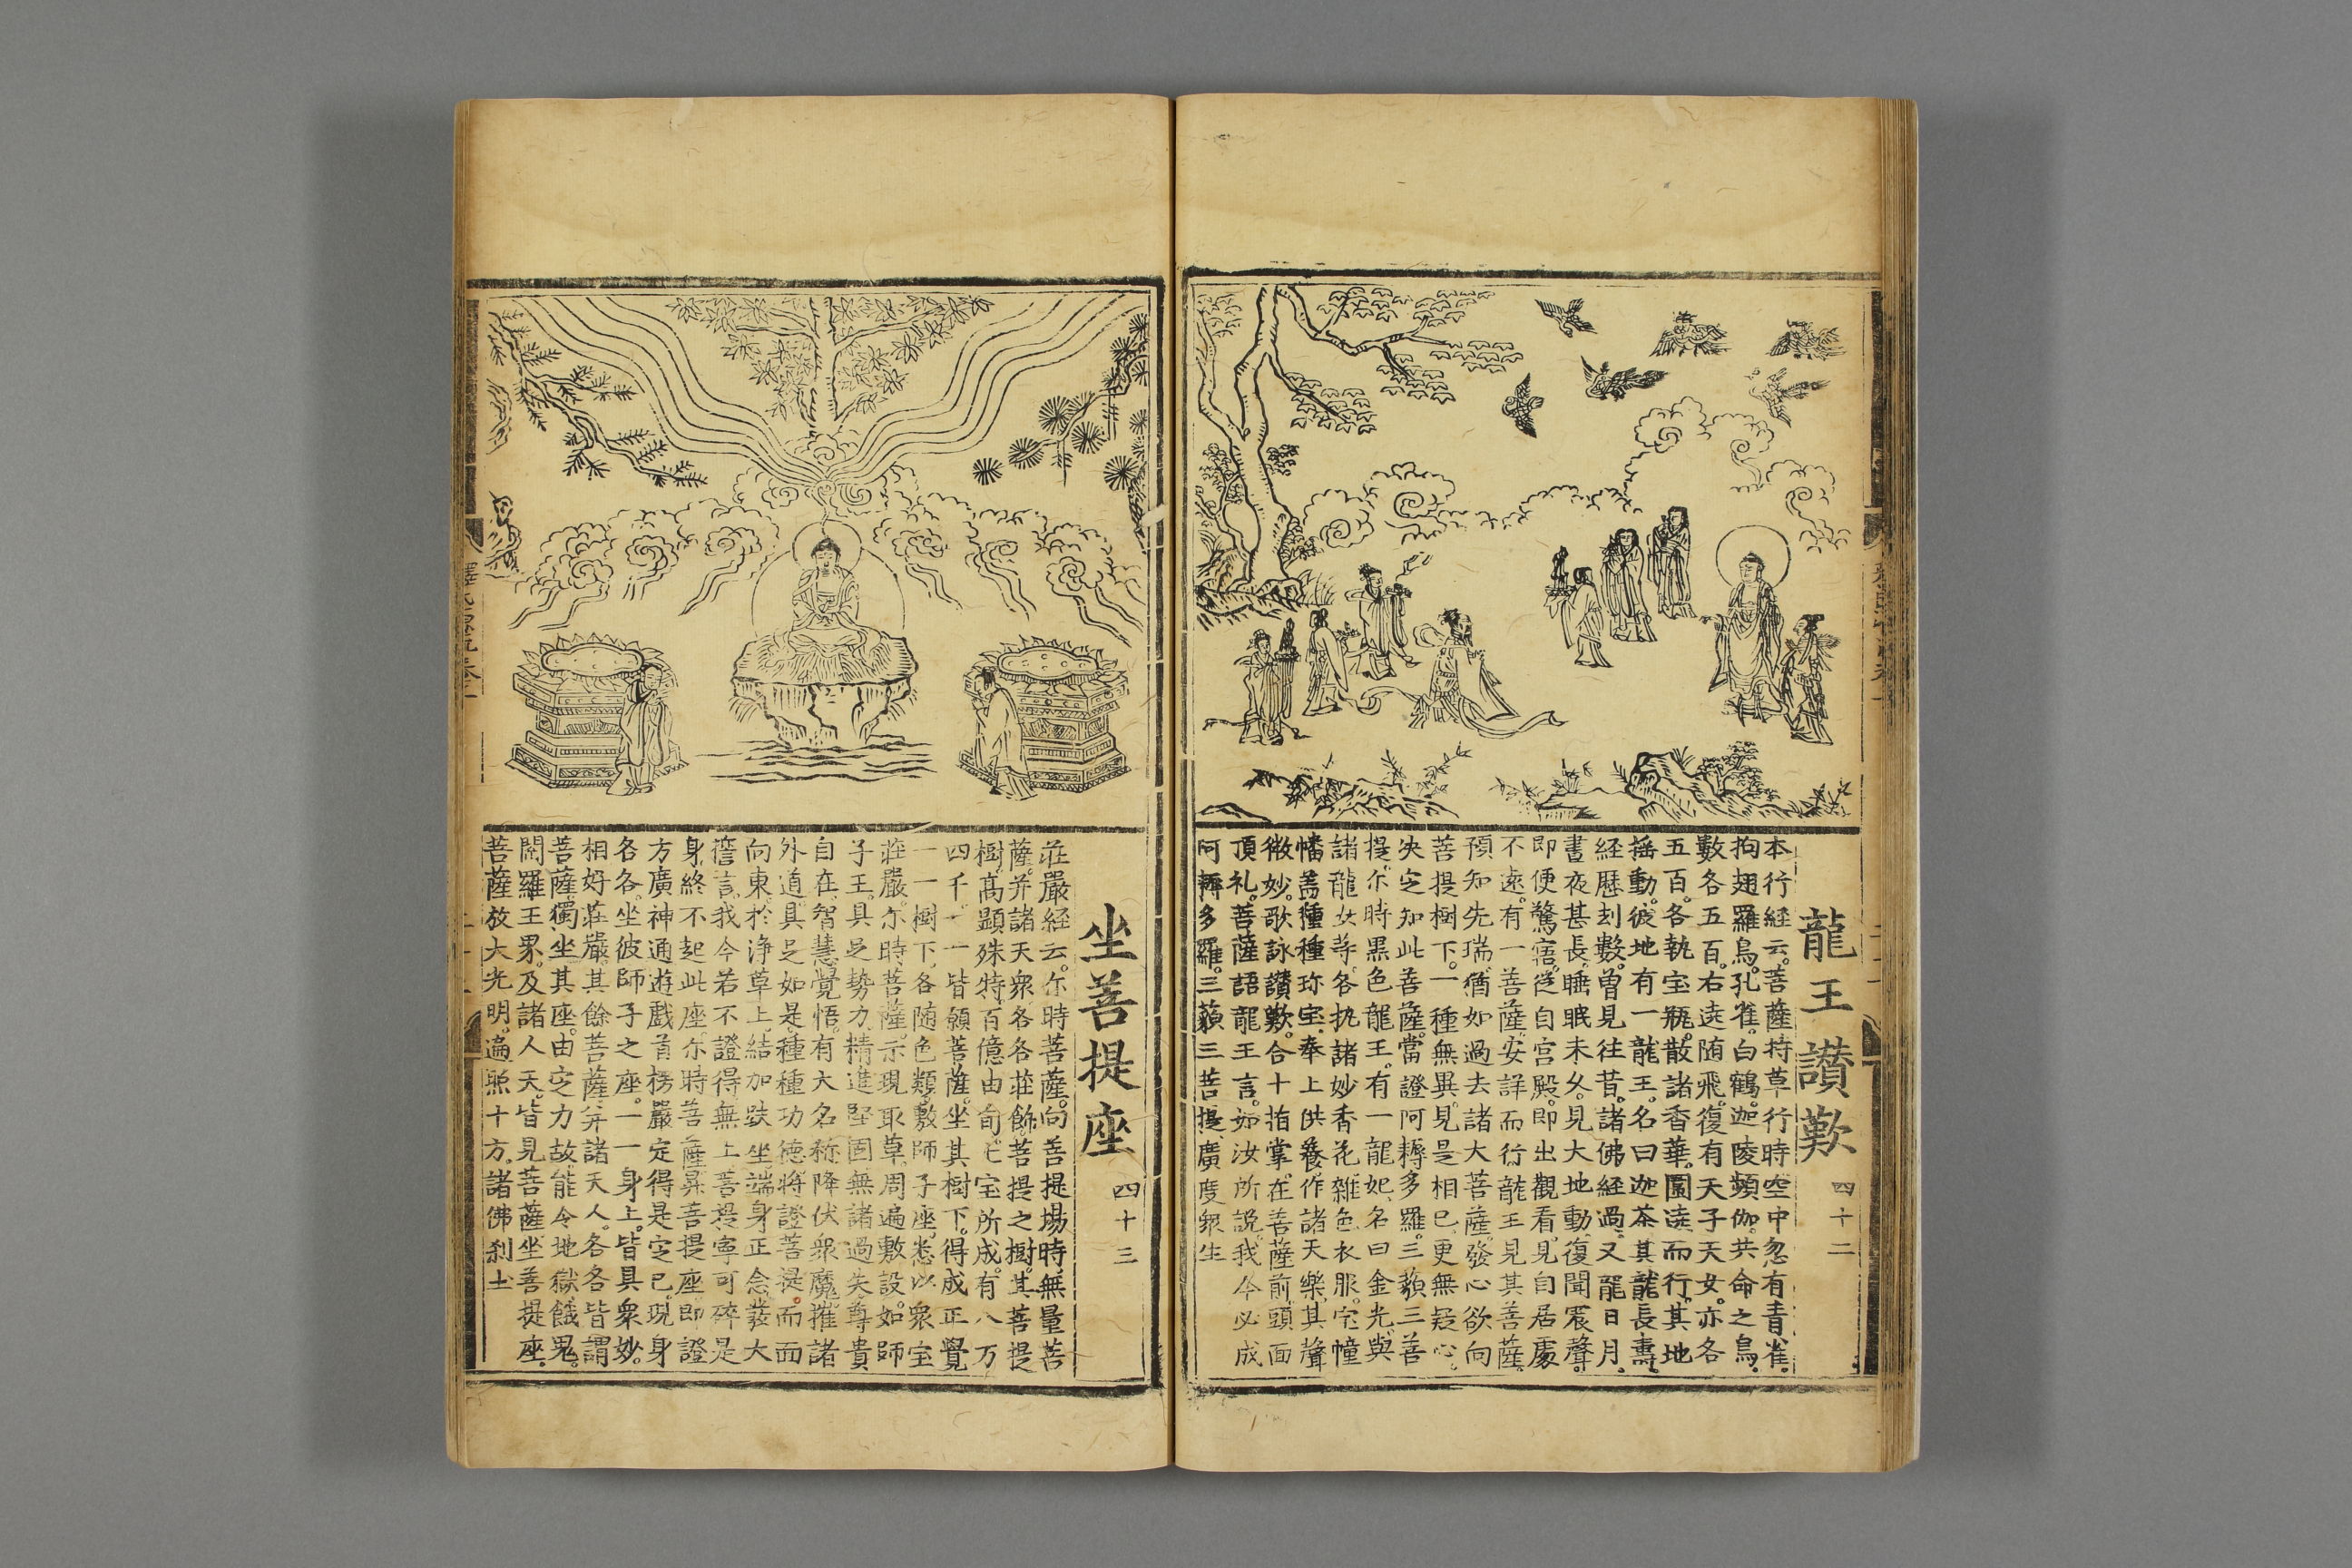 龍王讃歎 四十二
本行経云。菩薩持草行時。空中忽有青雀。
拘翅羅鳥。孔雀。白鶴。迦陵頻伽。共命之鳥。
數各五百。右遶随飛。復有天子天女。亦各
五百。各執宝瓶。散諸香華。圍遶而行。其地
揺動。彼地有一龍王。名曰迦茶。其龍長壽。
経歴刦數。曽見往昔。諸佛経過。又龍日月。
晝夜甚長。睡眠未久。見大地動。復聞震聲。
即便驚寤。従自宫殿。即出觀看。見自居處
不遠。有一菩薩。安詳而行。龍王見其菩薩。
預知先瑞。猶如過去諸大菩薩。發心欲向
菩提樹下。一種無異。見是相已。更無疑心。
决定知此菩薩。當證阿耨多羅。三藐三菩
提。尒時黒色龍王。有一龍妃。名曰金光。與
諸龍女等。各执諸妙香花。雜色衣服。宝幢
幡盖。種種珎宝。奉上供養。作諸天樂。其聲
微妙。歌詠讃歎。合十指掌。在菩薩前。頭面
頂礼。菩薩語龍王言。如汝所說。我今必成
阿耨多羅。三藐三菩提。廣度衆生
坐菩提座 四十三
莊嚴経云。尒時菩薩。向菩提場時。無量菩
薩。并諸天衆。各各莊餙。菩提之樹。其菩提
樹。髙顕殊特。百億由旬。七宝所成。有八万
四千。一一皆願菩薩。坐其樹下。得成正覺
一一樹下。各随色類。敷師子座。悉以衆宝
莊嚴。尒時菩薩。示現取草。周遍敷設。如師
子王。具足勢力。精進堅固。無諸過失。尊貴
自在。智慧覺悟。有大名称。降伏衆魔。摧諸
外道。具足如是種種功德。將證菩提。而面
向東。於浄草上。結加趺坐。端身正念。發大
誓言。我今若不證得無上菩提。寧可碎是
身。終不起此座。尒時菩薩。昇菩提座。即證
方廣神通遊戲首楞嚴定。得是定已。現身
各各。坐彼師子之座。一一身上。皆具衆妙。
相好莊嚴。其餘菩薩。并諸天人。各各皆謂
菩薩。獨坐其座。由定力故。能令地獄。餓鬼。
閻羅王界。及諸人天。皆見菩薩。坐菩提座。
菩薩放大光明。遍照十方。諸佛刹土